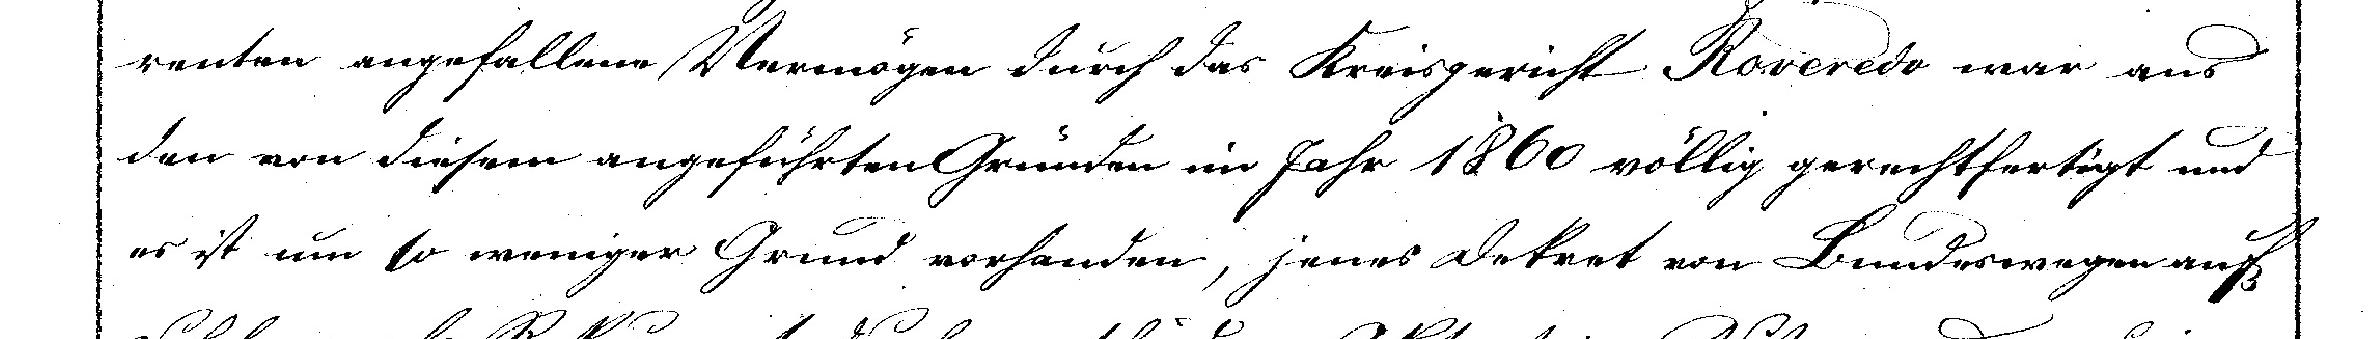 renten angefallene Vermögen durch das Kreisgericht Roveredo war aus
den von diesem angeführten Gründen im Jahr 1860 völlig gerechtfertigt und
es ist um so weniger Grund vorhanden, jenes Dekret von Bundeswegen auf=